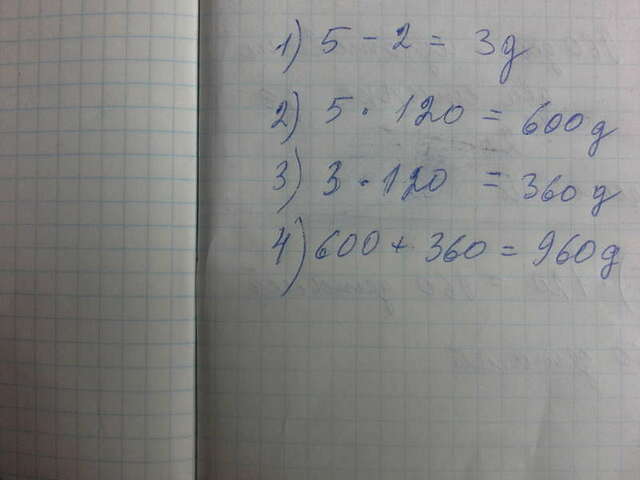 1) 5 - 2 = 3g
2) 5 · 120 = 600g
3) 3 · 120 = 360g
4) 600 + 360 = 960g